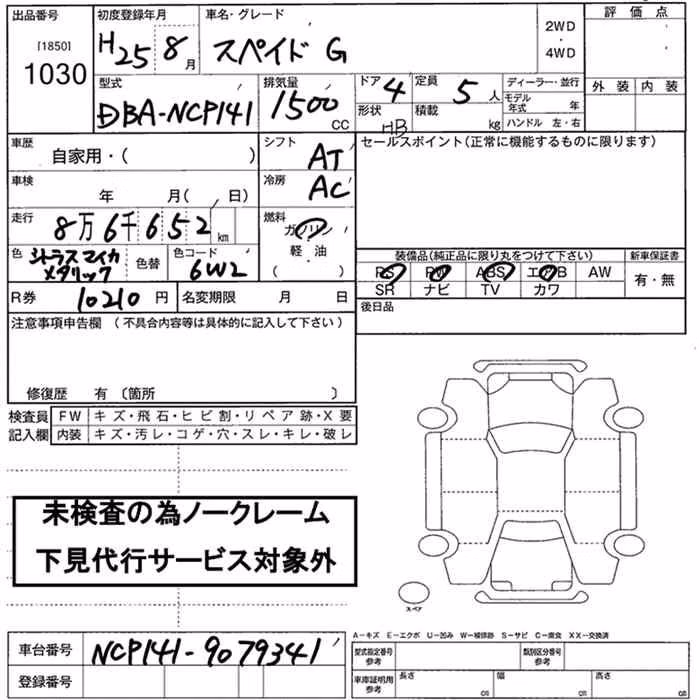 出品番号 初度登録年月 車名・グレード 評価点
[1850] 1030 H25 8月 スペイド G 2WD・4WD
外装 内装
型式 排気量 ドア 4 定員 5人 ディーラー・並行
DBA-NCP141 1500CC 形状 HB 積載 kg モデル年式 年
ハンドル 左・右
車歴 自家用・( ) シフト AT セールスポイント(正常に機能するものに限ります)
車検 年 月( 日) 冷房 AC
走行 8万6千652km 燃料 ガソリン・軽油( )
色 シトラスマイカメタリック 色替 色コード 6W2
装備品(純正品に限り丸をつけて下さい) 新車保証書
PS PW ABS エアB AW 有・無
SR ナビ TV カワ
R券 10210円 名変期限 月 日 後日品
注意事項申告欄(不具合内容等は具体的に記入して下さい)
修復歴 有(箇所 )
検査員 FW キズ・飛石・ヒビ割・リペア跡・X要
記入欄 内装 キズ・汚レ・コゲ・穴・スレ・キレ・破レ
未検査の為ノークレーム
下見代行サービス対象外
スペア
A-キズ E-エクボ U-凹み W-補修跡 S-サビ C-腐食 XX-交換済
車台番号 NCP141-9079341
型式指定番号 参考 類別区分番号 参考
登録番号
車庫証明用 参考 長さ cm 幅 cm 高さ cm